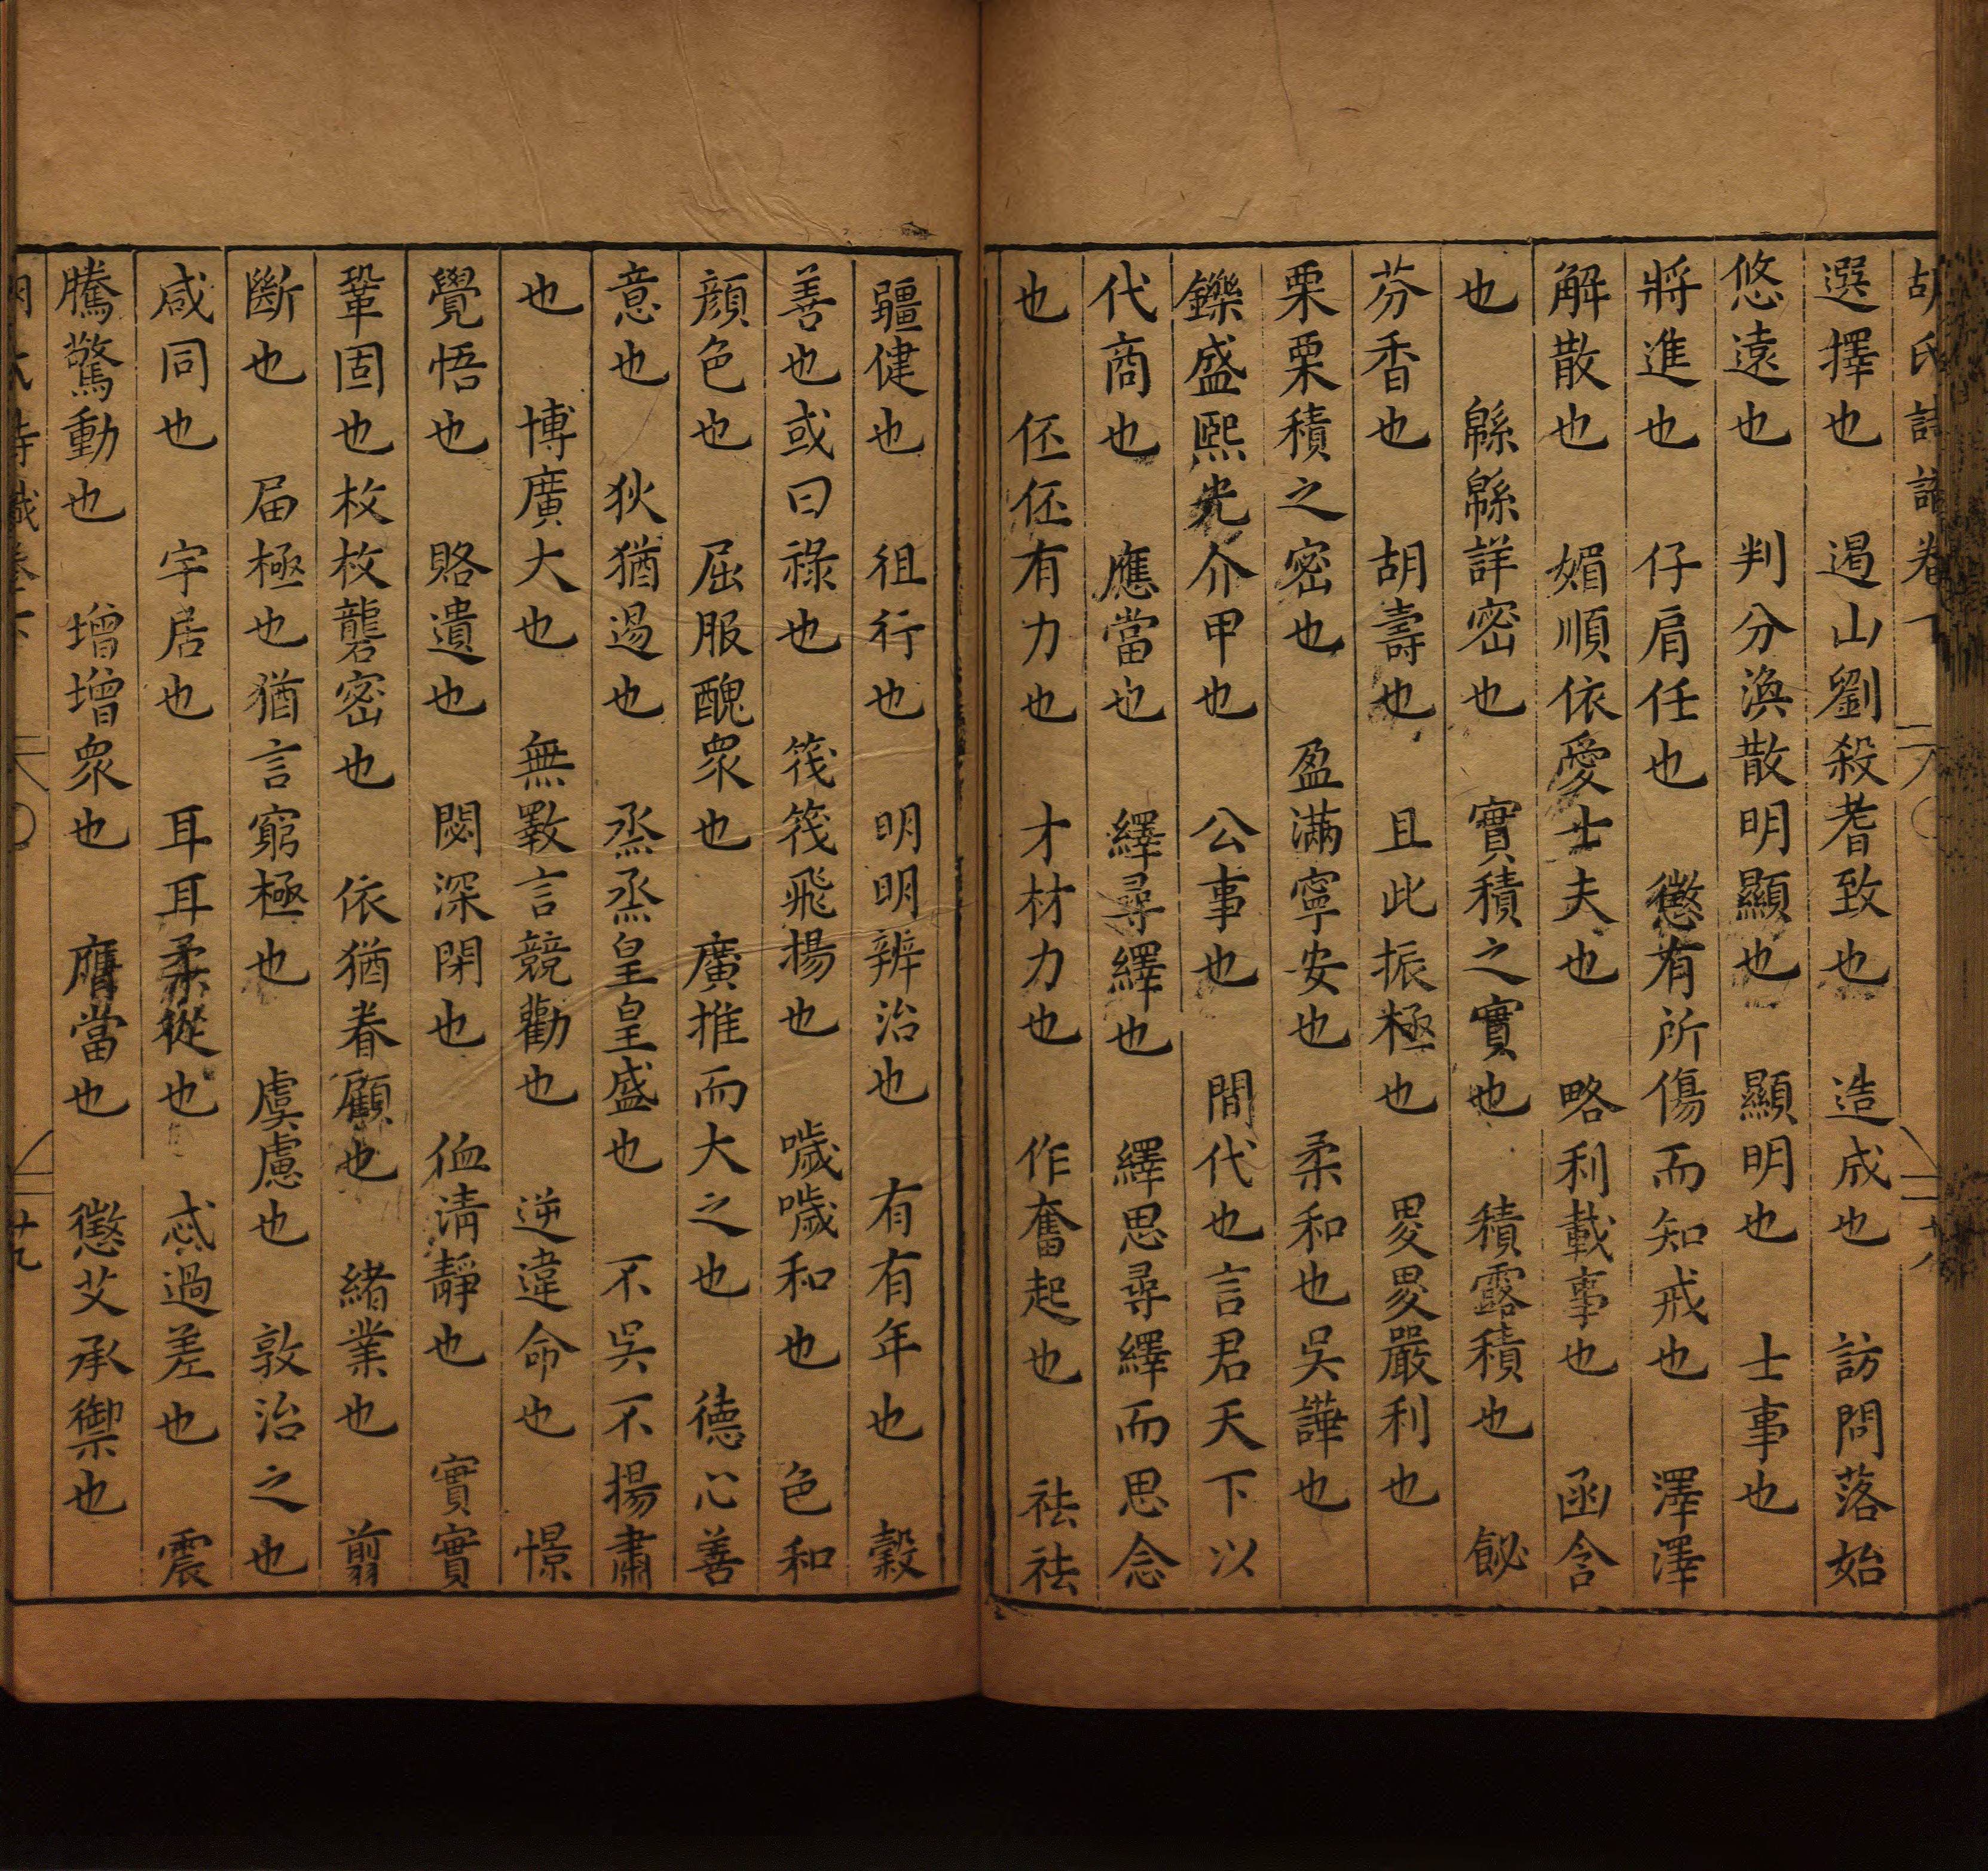 胡氏詩識卷下 廿八
選擇也 遏山劉殺耆致也 造成也 訪問落始
悠遠也 判分渙散明顯也 顯明也 士事也
將進也 仔肩任也 懲有所傷而知戒也 澤澤
解散也 媚順依愛士夫也 略利載事也 函含
也 緜緜詳密也 實積之實也 積露積也 飶
芬香也 胡壽也 且此振極也 畟畟嚴利也
栗栗積之密也 盈滿寧安也 柔和也吳譁也
鑠盛熙光介甲也 公事也 間代也言君天下以
代商也 應當也 繹尋繹也 繹思尋繹而思念
也 伾伾有力也 才材力也 作奮起也 祛祛
彊健也 徂行也 明明辨治也 有有年也 穀
善也或曰祿也 筏筏飛揚也 噦噦和也 色和
顏色也 屈服醜衆也 廣推而大之也 德心善
意也 狄猶逷也 烝烝皇皇盛也 不吳不揚肅
也 博廣大也 無斁言競勸也 逆違命也 憬
覺悟也 賂遺也 閟深閉也 侐清靜也 實實
鞏固也枚枚礱密也 依猶眷顧也 緒業也 翦
斷也 届極也猶言窮極也 虞慮也 敦治之也
咸同也 宇居也 耳耳柔從也 忒過差也 震
騰驚動也 增增衆也 膺當也 懲艾承禦也
胡氏詩識卷下 廿九